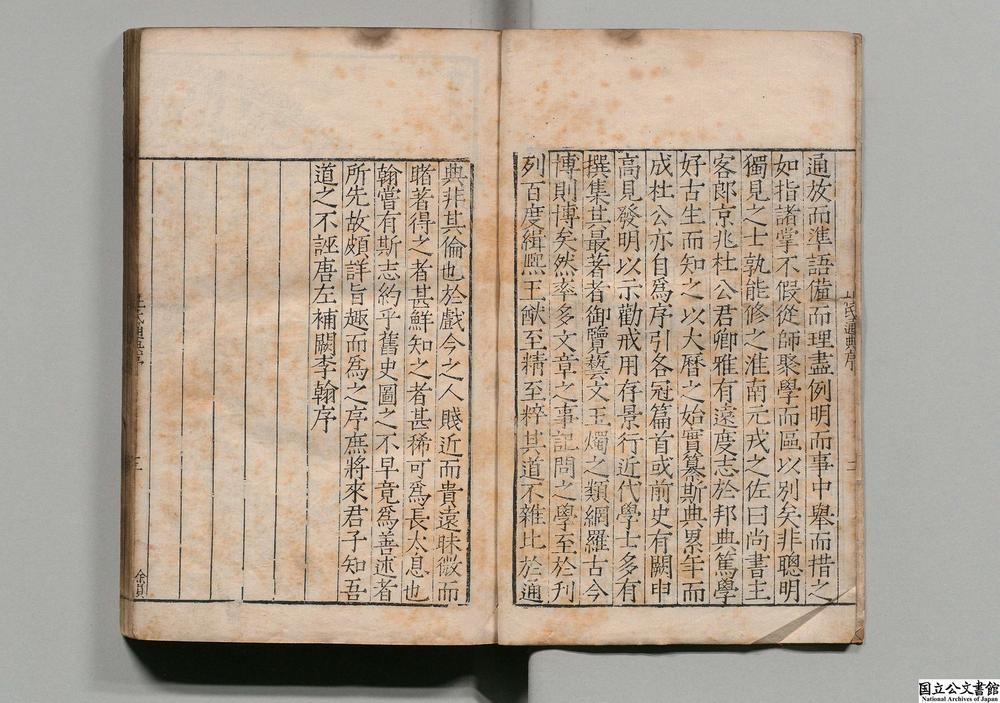 通放而準語備而理盡例明而事中舉而措之
如指諸掌不假從師聚學而區以別矣非聰明
獨見之士孰能修之淮南元戎之佐曰尚書主
客郎京兆杜公君卿雅有遠度志於邦典篤學
好古生而知之以大曆之始實纂斯典累年而
成杜公亦自爲序引各冠篇首或前史有闕申
高見發明以示勸戒用存景行近代學士多有
撰集其最著者御覽藝文玉燭之類網羅古今
博則博矣然率多文章之事記問之學至於刋
列百度緝熈王猷至精至粹其道不雜比於通
典非其倫也於戲今之人賤近而貴遠昧微而
睹著得之者甚鮮知之者甚稀可爲長太息也
翰嘗有斯志約乎舊史圖之不早竟爲善述者
所先故頗詳旨趣而爲之序庶將來君子知吾
道之不誣唐左補闕李翰序
氏通典序
二
三
国立公文書館
National Archives of Japan